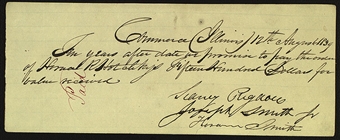 Commerce Illinois 12th August 1839
Ten years after date we promise to pay the order
of Horace R Hotchkiss Fifteen Hundred Dollars for
value received
Sidney Rigdon
Joseph Smith Jr
Hiram Smith